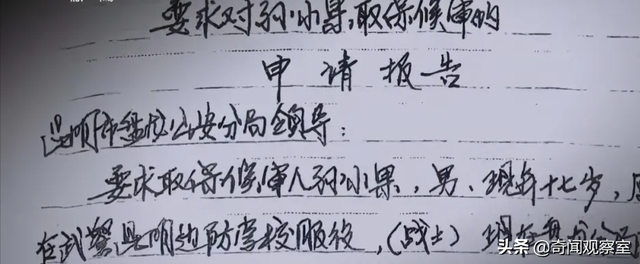 要求对孙小果取保候审的
申请报告
昆明市盘龙公安分局领导：
要求取保候审人孙小果，男、现年十七岁，
在武警昆明边防学校服役，（战士）现在
头条 @奇闻观察室